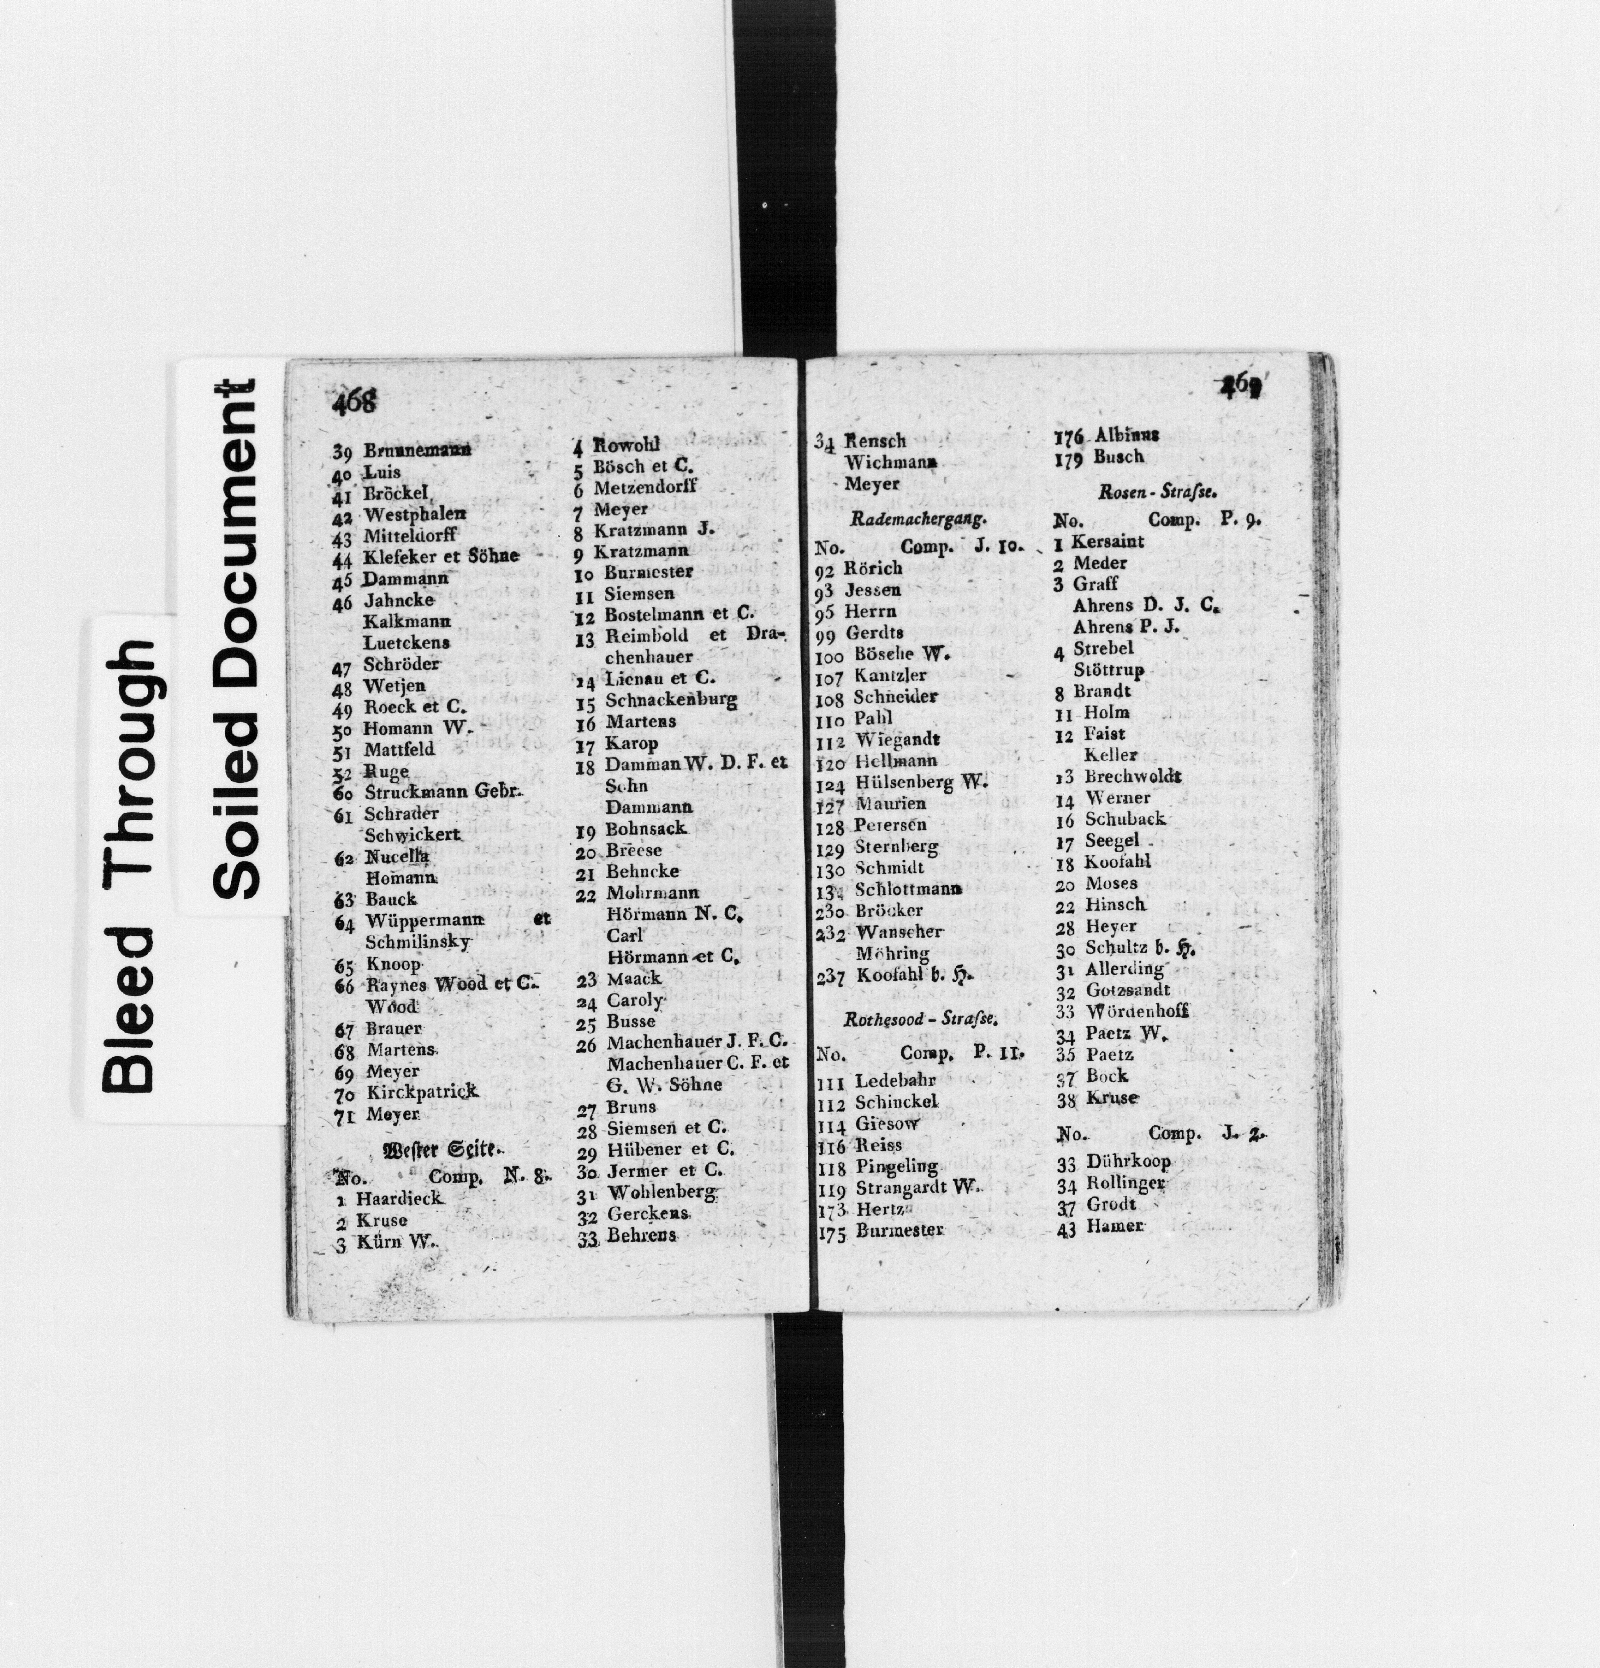 Bleed Through
Soiled Document
468
39 Brunnemann
40 Luis
41 Bröckel
42 Westphalen
43 Mitteldorff
44 Klefeker et Söhne
45 Dammann
46 Jahncke
Kalkmann
Luetckens
47 Schröder
48 Wetjen
49 Roeck et C.
50 Homann W.
51 Mattfeld
52 Ruge
60 Struckmann Gebr.
61 Schrader
Schwickert
62 Nucella
Homann
63 Bauck
64 Wüppermann et
Schmilinsky
65 Knoop
66 Raynes Wood et C.
Wood
67 Brauer
68 Martens
69 Meyer
70 Kirckpatrick
71 Meyer
Wester Seite.
No. Comp. N. 8.
1 Haardieck
2 Kruse
3 Kürn W.
4 Rowohl
5 Bösch et C.
6 Metzendorff
7 Meyer
8 Kratzmann J.
9 Kratzmann
10 Burmester
11 Siemsen
12 Bostelmann et C.
13 Reimbold et Dra-
chenhauer
14 Lienau et C.
15 Schnackenburg
16 Martens
17 Karop
18 Damman W. D. F. et
Sohn
Dammann
19 Bohnsack
20 Breese
21 Behncke
22 Mohrmann
Hörmann N. C.
Carl
Hörmann et C.
23 Maack
24 Caroly
25 Busse
26 Machenhauer J. F. C.
Machenhauer C. F. et
G. W. Söhne
27 Bruns
28 Siemsen et C.
29 Hübener et C.
30 Jermer et C.
31 Wohlenberg
32 Gerckens
33 Behrens
469
34 Rensch
Wichmann
Meyer
Rademachergang.
No. Comp. J. 10.
92 Rörich
93 Jessen
95 Herrn
99 Gerdts
100 Bösche W.
107 Kantzler
108 Schneider
110 Pahl
112 Wiegandt
120 Hellmann
124 Hülsenberg W.
127 Maurien
128 Petersen
129 Sternberg
130 Schmidt
Schlottmann
230 Bröcker
232 Wanscher
Möhring
237 Koofahl b. H.
Rothesood-Straſse.
No. Comp. P. 11.
111 Ledebahr
112 Schinckel
114 Giesow
116 Reiss
118 Pingeling
119 Strangardt W.
173 Hertz
175 Burmester
176 Albinus
179 Busch
Rosen-Straſse.
No. Comp. P. 9.
1 Kersaint
2 Meder
3 Graff
Ahrens D. J. C.
Ahrens P. J.
4 Strebel
Stöttrup
8 Brandt
11 Holm
12 Faist
Keller
13 Brechwoldt
14 Werner
16 Schuback
17 Seegel
18 Koofahl
20 Moses
22 Hinsch
28 Heyer
30 Schultz b. H.
31 Allerding
32 Gotzsandt
33 Wördenhoff
34 Paetz W.
35 Paetz
37 Bock
38 Kruse
No. Comp. J. 2.
33 Dührkoop
34 Rollinger
37 Grodt
43 Hamer